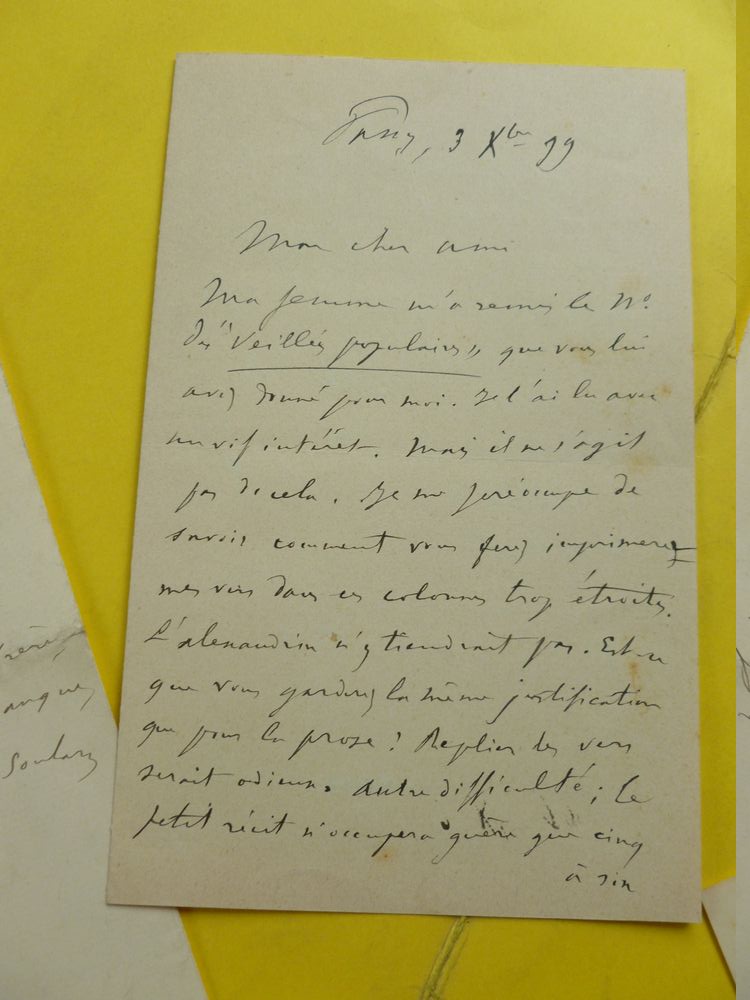 Passy, 3 Xbre 99
Mon cher ami
Ma femme m'a remis le No.
des "Veillées populaires" que vous lui
avez donné pour moi. Je l'ai lu avec
un vif intérêt. Mais il ne s'agit
pas de cela. Je me préoccupe de
savoir comment vous ferez imprimer
mes vers dans ces colonnes trop étroites.
L'alexandrin n'y tiendrait pas. Est-ce
que vous garderez la même justification
que pour la prose? Replier les vers
serait odieux. Autre difficulté; le
petit récit n'occupera guère que cinq
à six
rère,
angues
Soulary